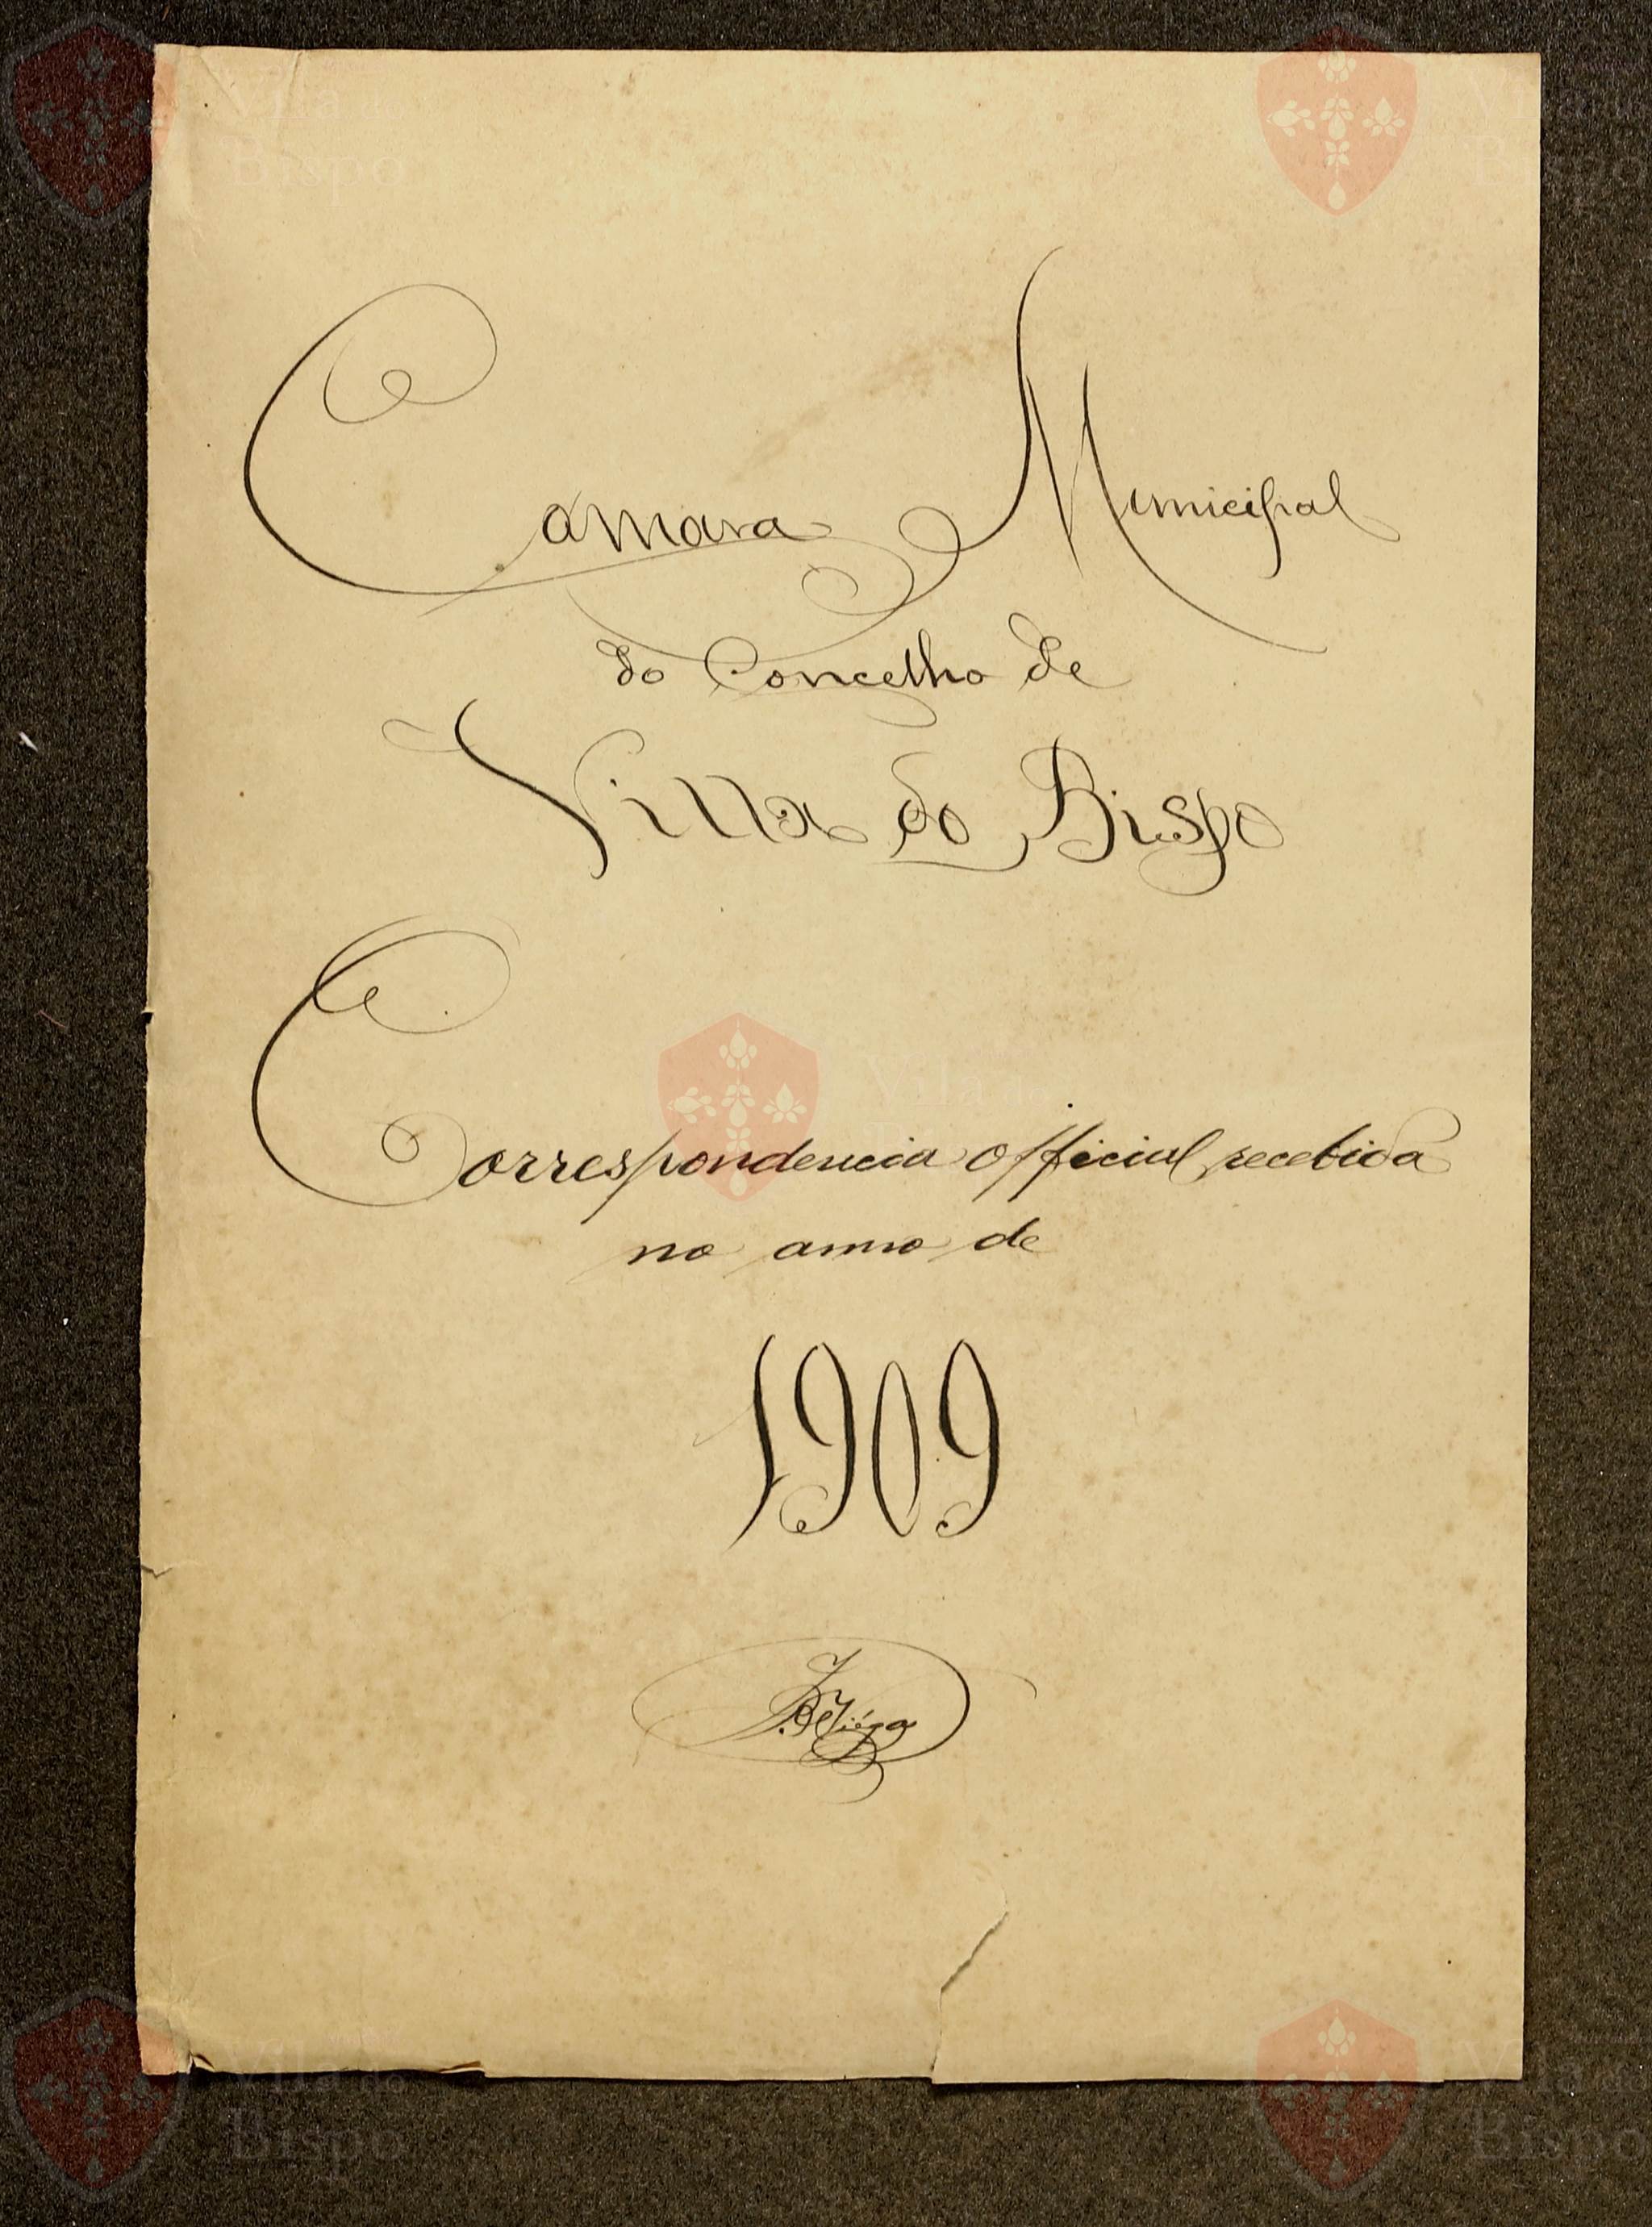 Camara Municipal
do Concelho de
Villa do Bispo
Correspondencia official recebida
no anno de
1909
Vila do
Bispo